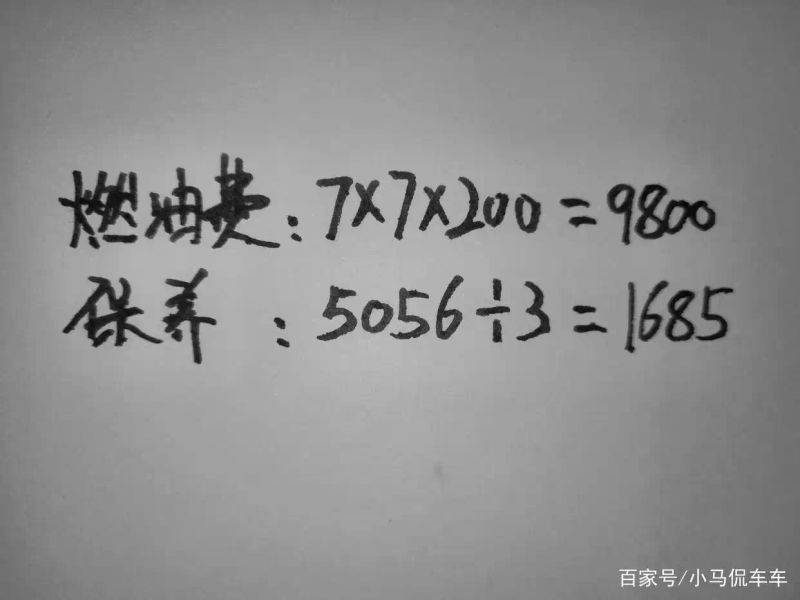 燃油费:7×7×200=9800
保养:5056÷3=1685
百家号/小马侃车车